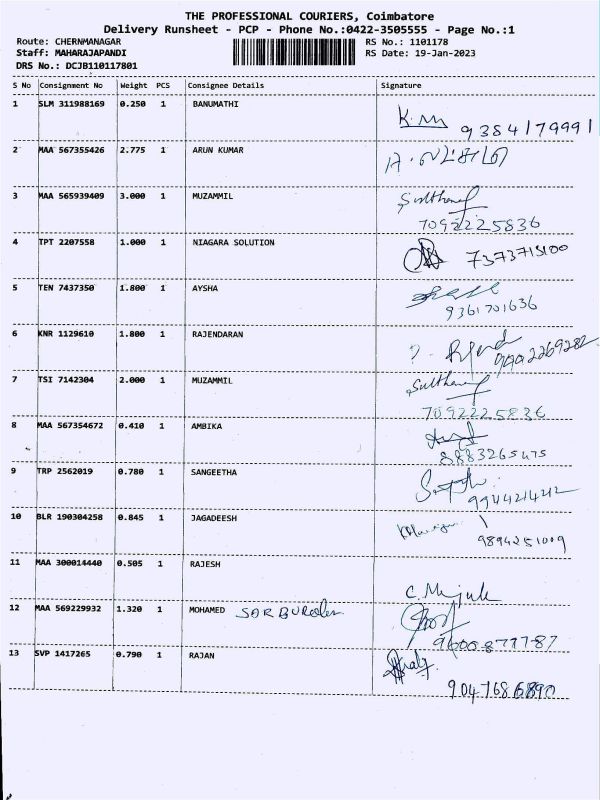 THE PROFESSIONAL COURIERS, Coimbatore
Delivery Runsheet - PCP - Phone No.:0422-3505555 - Page No.:1
Route: CHERNMANAGAR RS No.: 1101178
Staff: MAHARAJAPANDI RS Date: 19-Jan-2023
DRS No.: DCJB110117801
S No Consignment No Weight PCS Consignee Details Signature
1 SLM 311988169 0.250 1 BANUMATHI
9384179991
2 MAA 567355426 2.775 1 ARUN KUMAR
3 MAA 565939409 3.000 1 MUZAMMIL
7092225836
4 TPT 2207558 1.000 1 NIAGARA SOLUTION
7373715100
5 TEN 7437350 1.800 1 AYSHA
9361701636
6 KNR 1129610 1.800 1 RAJENDARAN
7 TSI 7142304 2.000 1 MUZAMMIL
7092225836
8 MAA 567354672 0.410 1 AMBIKA
8883265475
9 TRP 2562019 0.780 1 SANGEETHA
9944214212
10 BLR 190304258 0.845 1 JAGADEESH
9894251009
11 MAA 300014440 0.505 1 RAJESH
12 MAA 569229932 1.320 1 MOHAMED
9600877787
13 SVP 1417265 0.790 1 RAJAN
9047686890